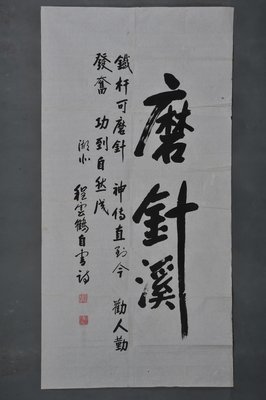 磨針溪
鐵杵可磨針 神傳直到今 勸人勤
發奮 功到自然成
湖北 程雲鶴自書詩